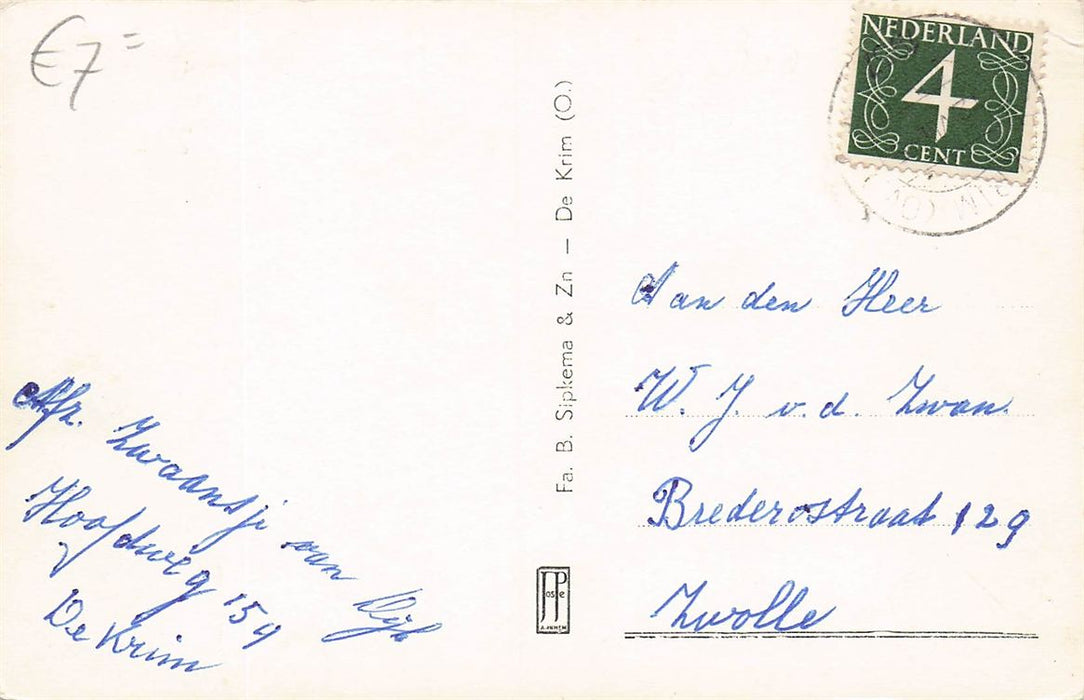 €7=
NEDERLAND
4
CENT
Fa. B. Sipkema & Zn — De Krim (O.)
Aan den Heer
W. J. v. d. Zwan.
Brederostraat 129
Zwolle
Afz. Zwaantje van Dijk
Hoofdweg 154
De Krim
JosPe
ARNHEM